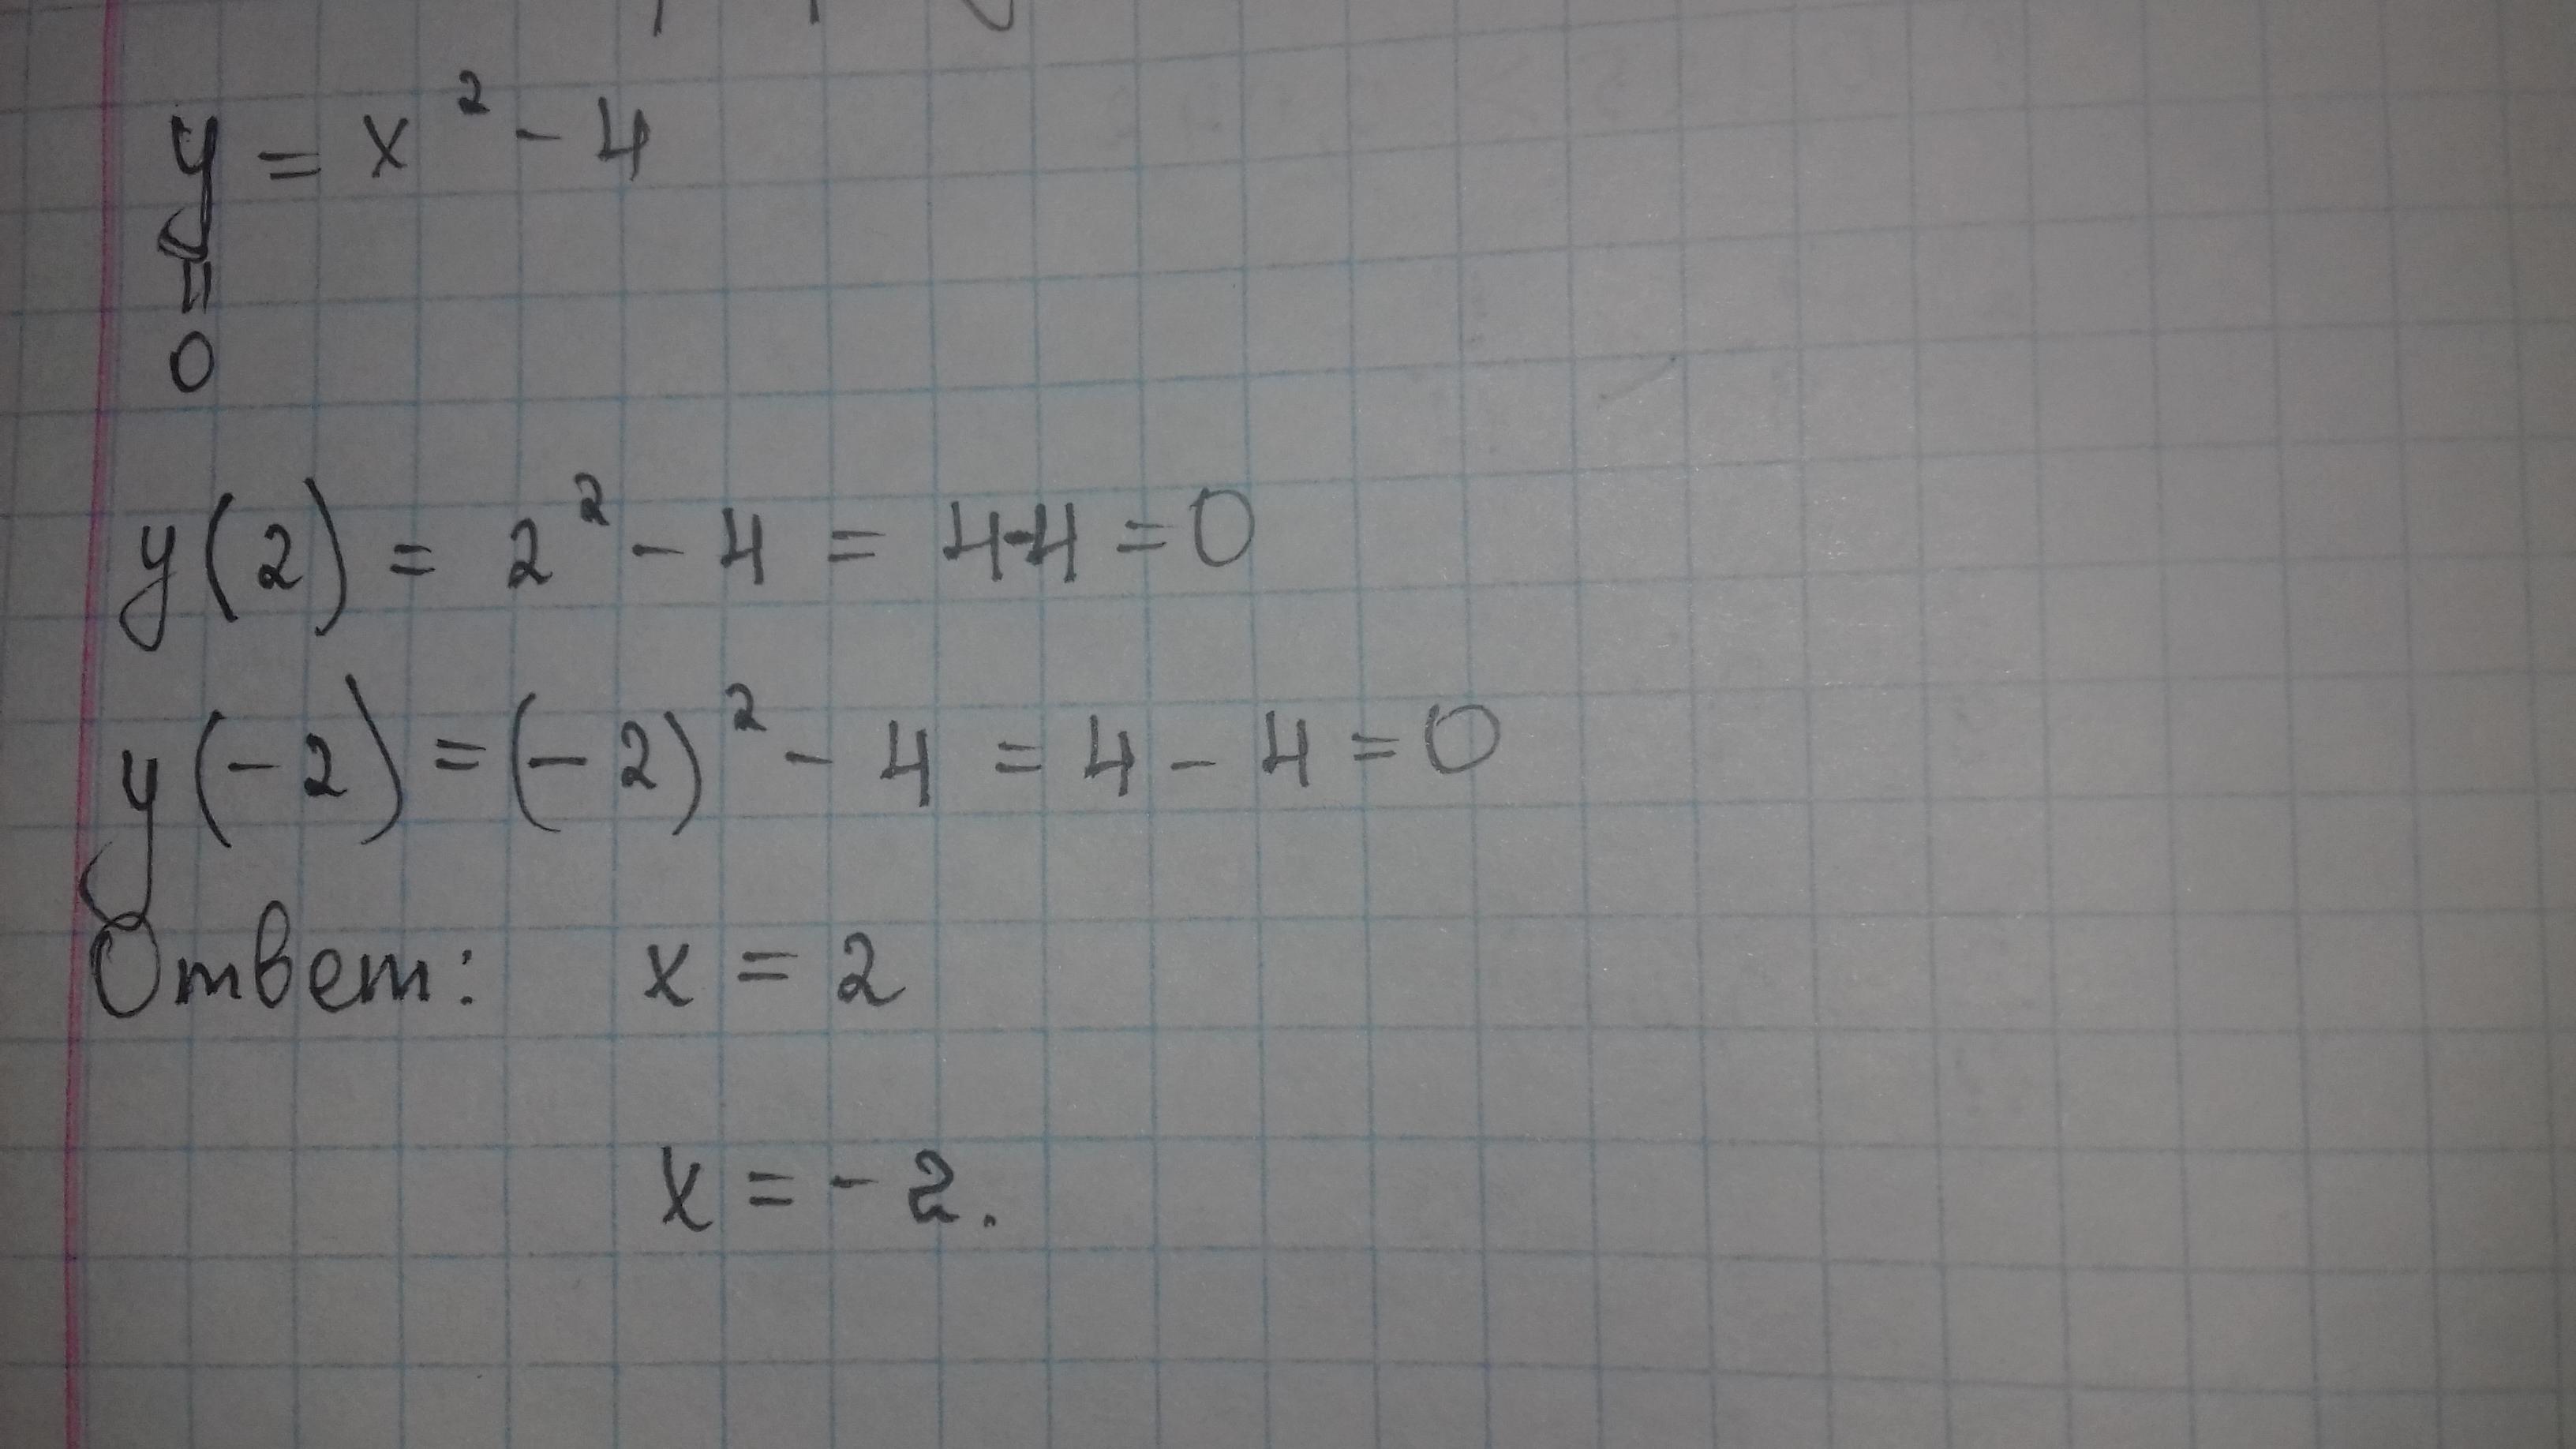 y = x² - 4
=
0
y(2) = 2² - 4 = 4-4 = 0
y(-2) = (-2)² - 4 = 4 - 4 = 0
Ответ: x = 2
x = - 2.